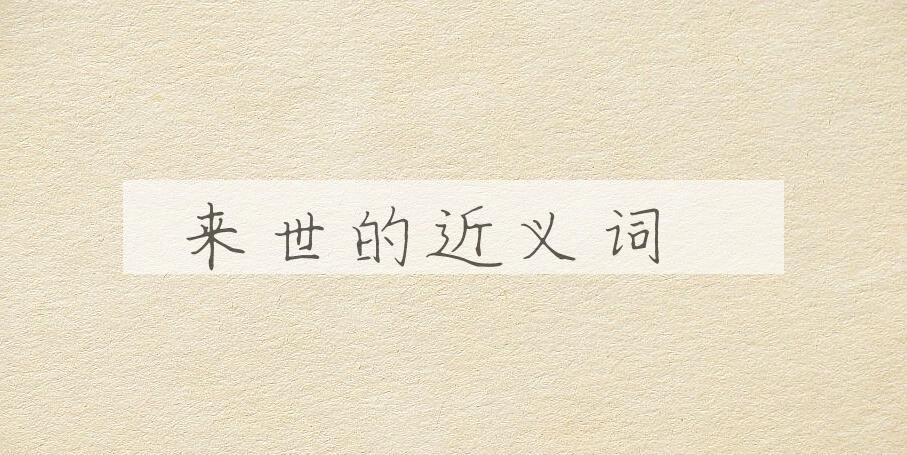 来世的近义词